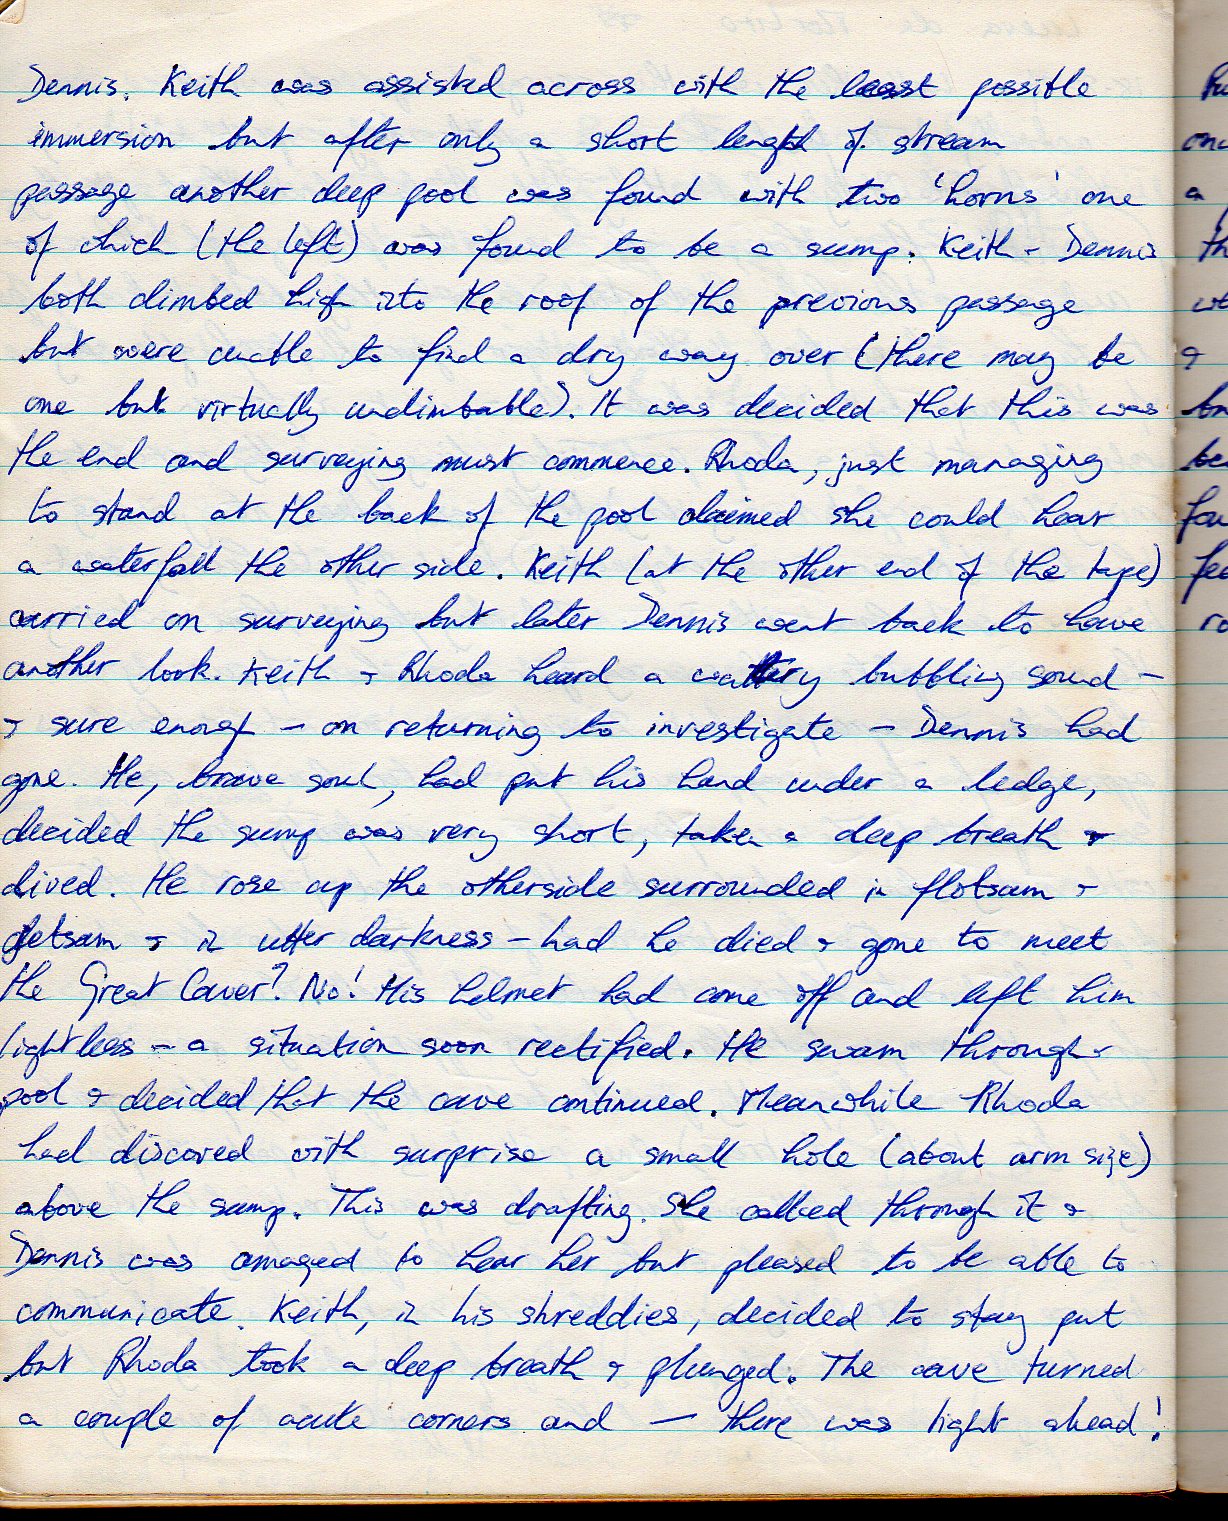 Dennis. Keith was assisted across with the least possible
immersion but after only a short length of stream
passage another deep pool was found with two 'horns' one
of which (the left) was found to be a sump. Keith & Dennis
both climbed high into the roof of the previous passage
but were unable to find a dry way over (there may be
one but virtually unclimbable). It was decided that this was
the end and surveying must commence. Rhoda, just managing
to stand at the back of the pool claimed she could hear
a waterfall the other side. Keith (at the other end of the tape)
carried on surveying but later Dennis went back to have
another look. Keith & Rhoda heard a watery bubbling sound –
& sure enough – on returning to investigate – Dennis had
gone. He, brave soul, had put his hand under a ledge,
decided the sump was very short, taken a deep breath &
dived. He rose up the otherside surrounded in flotsam &
jetsam & in utter darkness – had he died & gone to meet
the Great Caver? No! His helmet had come off and left him
lightless – a situation soon rectified. He swam through
pool & decided that the cave continued. Meanwhile Rhoda
had discovered with surprise a small hole (about arm size)
above the sump. This was drafting. She called through it &
Dennis was amazed to hear her but pleased to be able to
communicate. Keith, in his shreddies, decided to stay put
but Rhoda took a deep breath & plunged. The cave turned
a couple of acute corners and – there was light ahead!